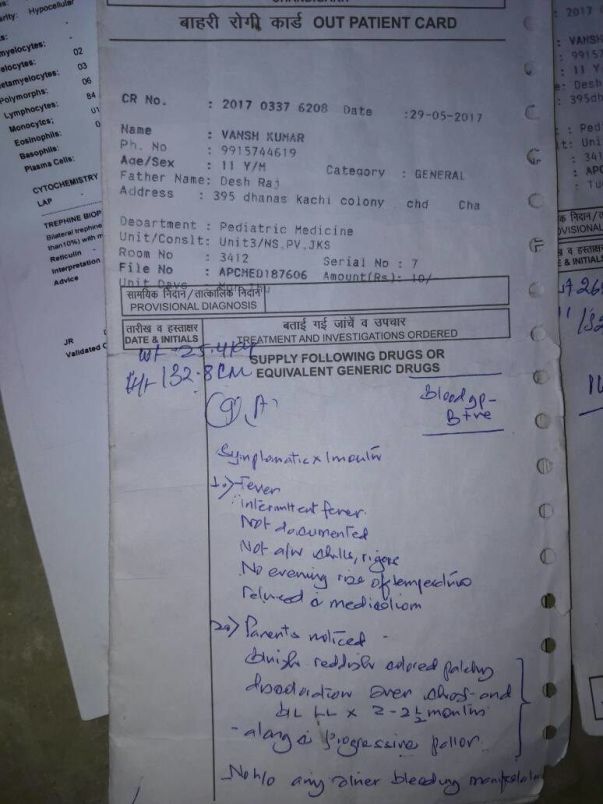 CHANDIGARH
बाहरी रोगी कार्ड OUT PATIENT CARD
CR No. : 2017 0337 6208 Date :29-05-2017
Name : VANSH KUMAR
Ph. No : 9915744619
Age/Sex : 11 Y/M Category : GENERAL
Father Name: Desh Raj
Address : 395 dhanas kachi colony chd Cha
Department : Pediatric Medicine
Unit/Conslt: Unit3/NS,PV,JKS
Room No : 3412 Serial No : 7
File No : APCMED187606 Amount(Rs): 10/
Unit Days
सामयिक निदान/तात्कालिक निदान
PROVISIONAL DIAGNOSIS
तारीख व हस्ताक्षर
DATE & INITIALS
बताई गई जांचें व उपचार
TREATMENT AND INVESTIGATIONS ORDERED
SUPPLY FOLLOWING DRUGS OR
EQUIVALENT GENERIC DRUGS
Wt - 25.4kg
Ht 132.8CM
Blood gp-
B+ve
Symptomatic x 1 month
1.) Fever
intermittent fever.
Not documented
Not a/w chills, rigors
No evening rise of temperature
relieved c medication
2.) Parents noticed -
bluish reddish colored patchy
over chest and
x 2-2½ months
- along c progressive pallor.
No h/o any other bleeding
Hypocellular
02
03
Polymorphs: 06
Lymphocytes: 84
Monocytes: 01
Eosinophils: 0
Basophils:
Plasma Cells:
CYTOCHEMISTRY
LAP
TREPHINE BIOP
Bilateral trephine
than10%) with m
Reticulin
Interpretation
Advice
JR
Validated